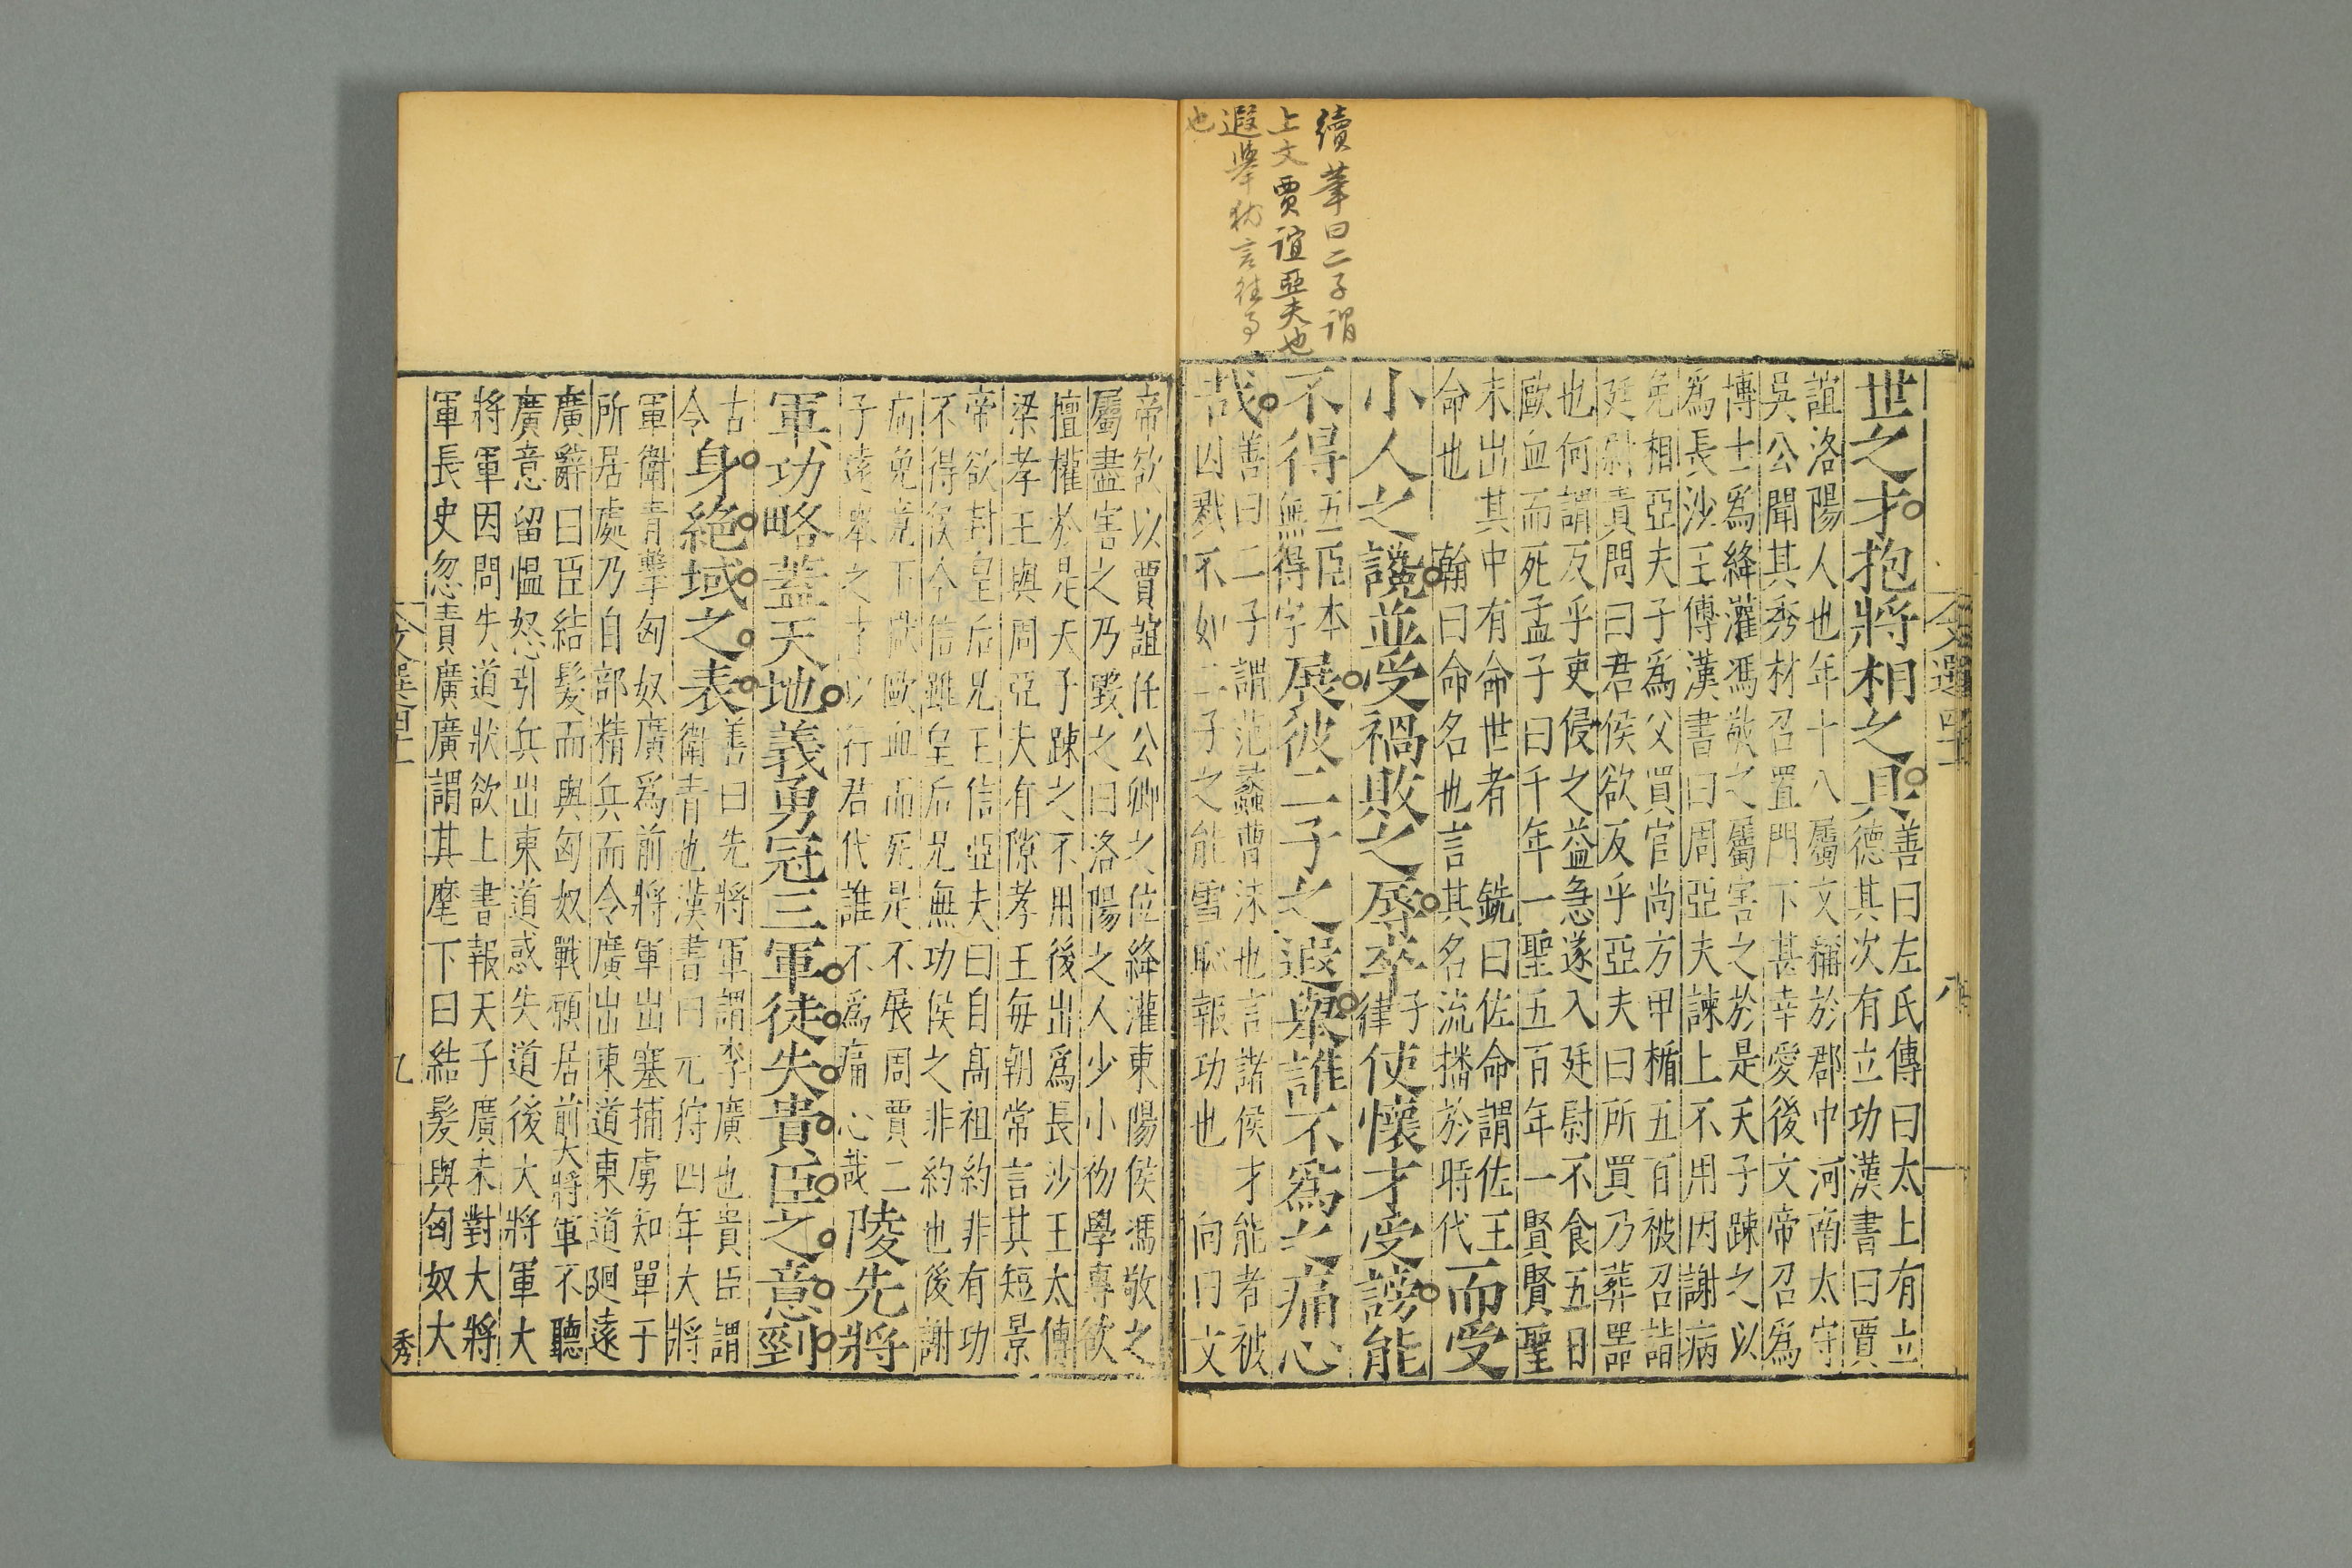 續筆曰二子謂
上文賈誼亞夫也
遐舉猶言往
也
文選四十一 八
世之才抱將相之具善曰左氏傳曰太上有立
德其次有立功漢書曰賈
誼洛陽人也年十八屬文稱於郡中河南太守
吳公聞其秀材召置門下甚幸愛後文帝召為
博士爲絳灌馮敬之屬害之於是天子踈之以
爲長沙王傅漢書曰周亞夫諫上不用因謝病
免相亞夫子為父買官尚方甲楯五百被召詣
廷尉責問曰君侯欲反乎亞夫曰所買乃葬噐
也何謂反乎吏侵之益急遂入廷尉不食五日
歐血而死孟子曰千年一聖五百年一賢賢聖
未出其中有命世者 銑曰佐命謂佐王
命也 翰曰命名也言其名流播於時代而受
小人之讒並受禍敗之辱卒子律使懷才受謗能
不得五臣本無得字展彼二子之遐舉誰不爲之痛心
哉善曰二子謂范蠡曹沬也言諸侯才能者被
囚戮不如二子之能雪耻報功也 向曰文
帝欲以賈誼任公卿之位絳灌東陽侯馮敬之
屬盡害之乃毀之曰洛陽之人少小初學專欲
擅權於是天子踈之不用後出爲長沙王太傅
梁孝王與周亞夫有隙孝王每朝常言其短景
帝欲封皇后兄王信亞夫曰自髙祖約非有功
不得侯今信雖皇后兄無功侯之非約也後謝
病免竟下獄歐血而死是不展周賈二
子遠舉之才以行君代誰不爲痛心哉陵先將
軍功略蓋天地義勇冠三軍徒失貴臣之意剄
古令身絶域之表善曰先將軍謂李廣也貴臣謂
衛青也漢書曰元狩四年大將
軍衛青擊匈奴廣爲前將軍出塞捕虜知單于
所居處乃自部精兵而令廣出東道東道廻遠
廣辭曰臣結髮而與匈奴戰願居前大將軍不聽
廣意留愠怒引兵出東道惑失道後大將軍大
將軍因問失道狀欲上書報天子廣未對大將
軍長史忽責廣廣謂其麾下曰結髮與匈奴大
文選四十一 九 秀